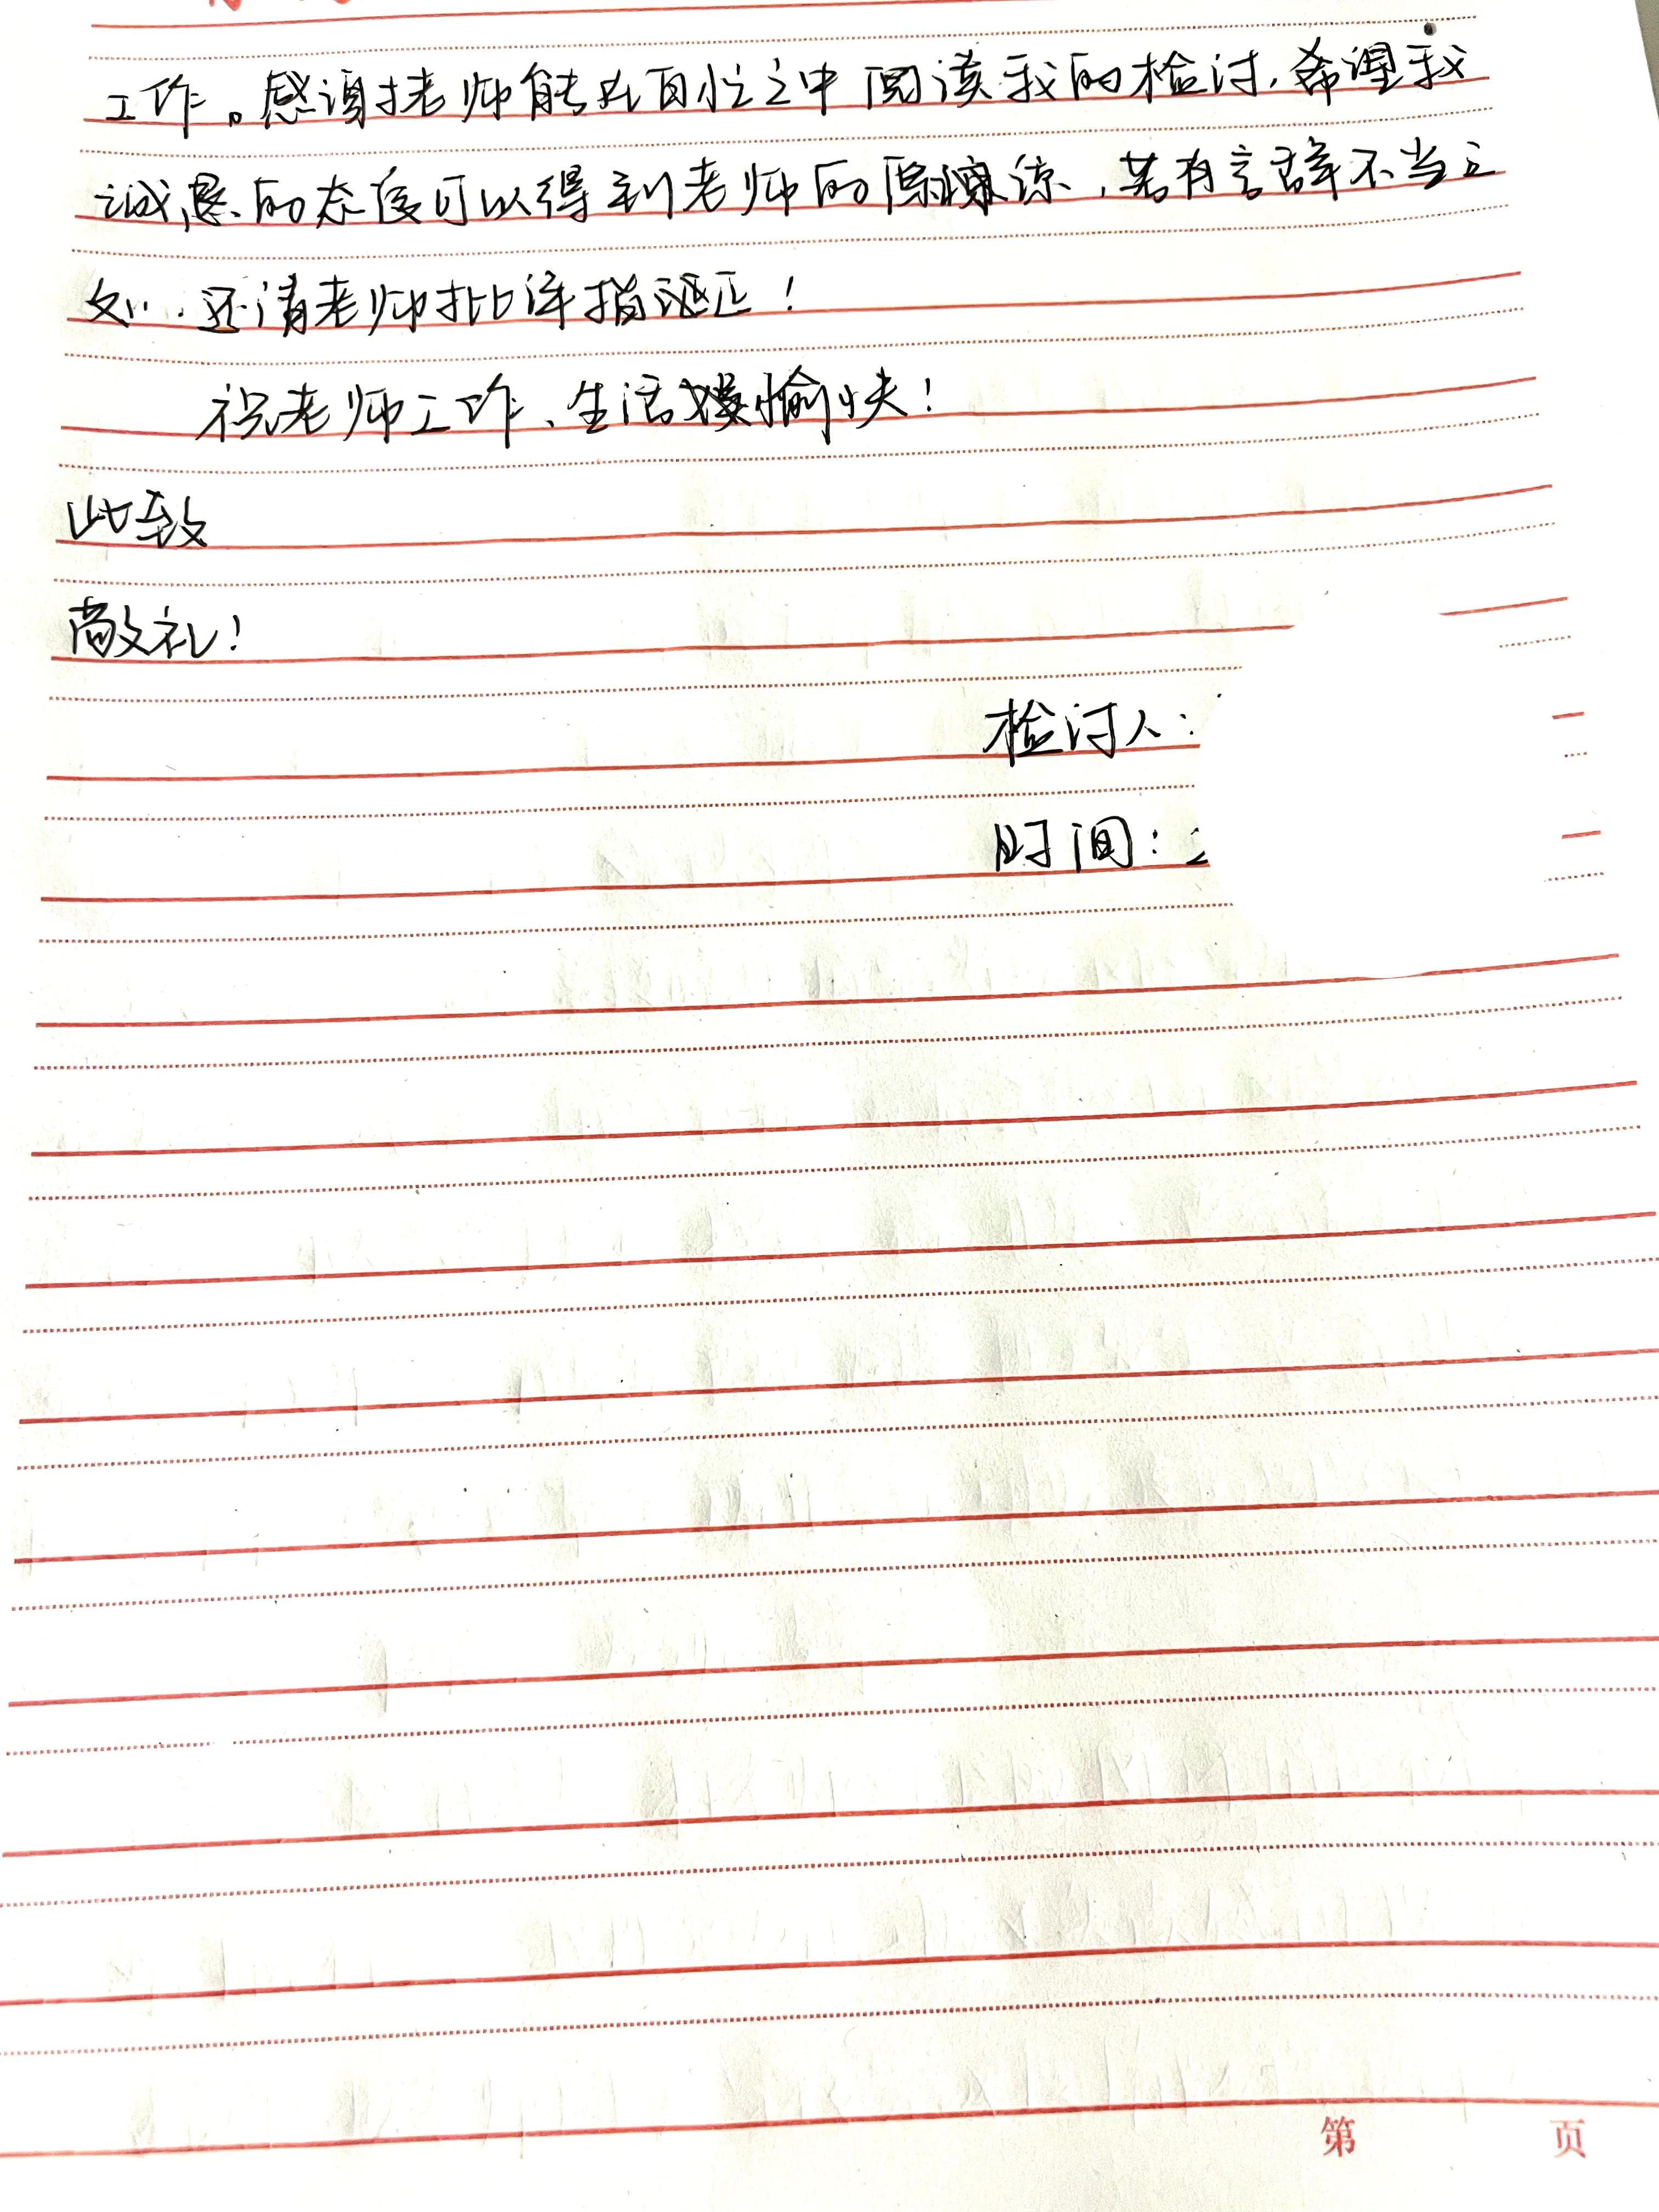 工作。感谢老师能在百忙之中阅读我的检讨,希望我
诚恳的态度可以得到老师的原谅,若有言辞不当之
处,还请老师批评指正!
祝老师工作、生活愉快!
此致
敬礼!
检讨人:
时间:
第 页